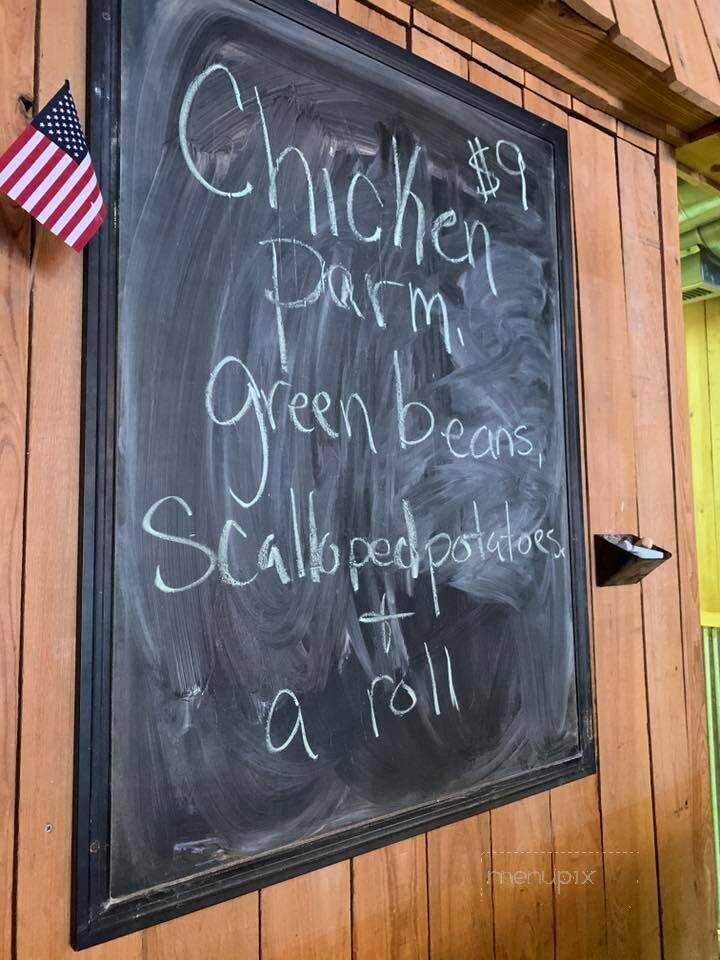 Chicken $9
parm,
green beans,
Scalloped potatoes
+
a roll
menupix